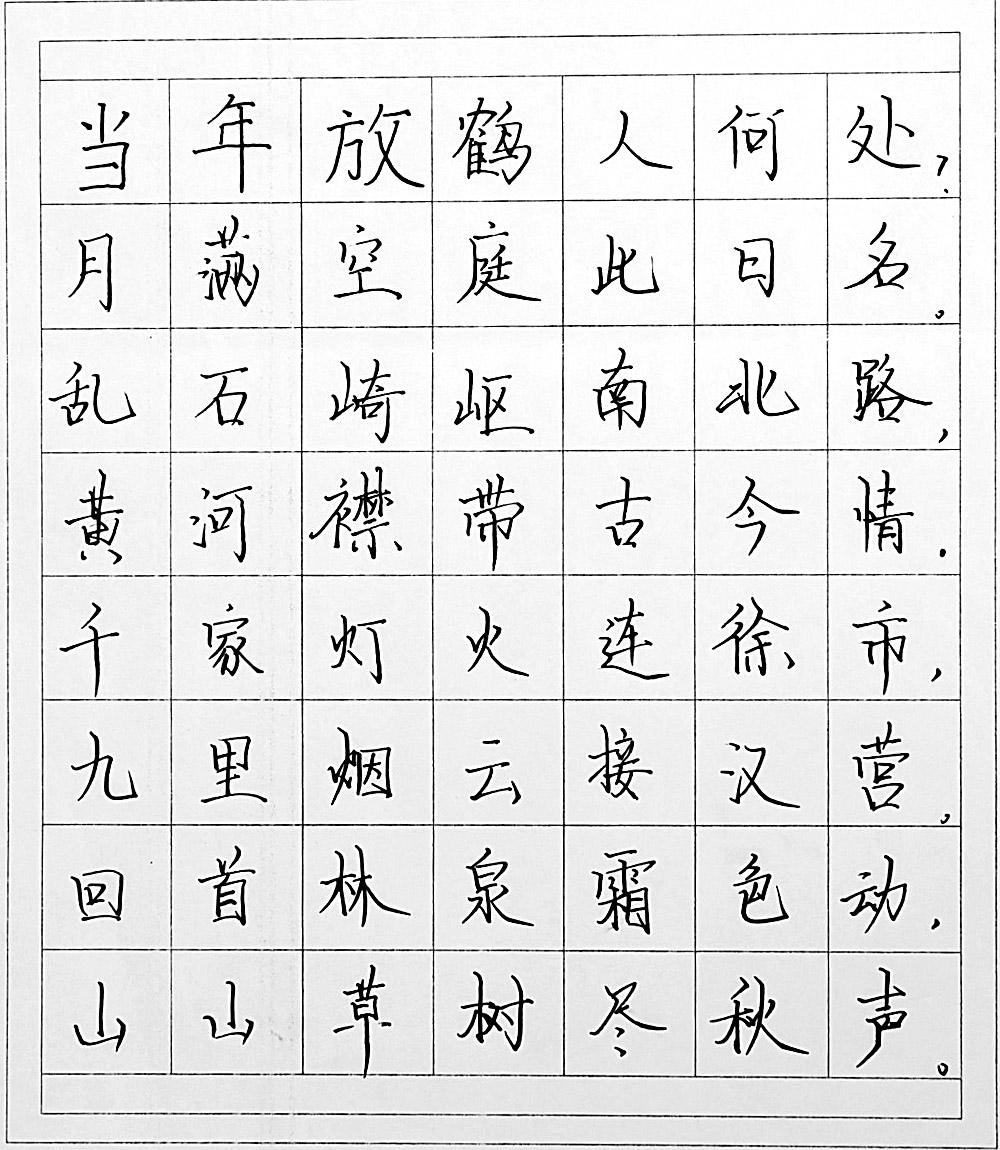 当年放鹤人何处?
月满空庭此日名。
乱石崎岖南北路,
黄河襟带古今情.
千家灯火连徐市,
九里烟云接汉营。
回首林泉霜色动,
山山草树尽秋声。